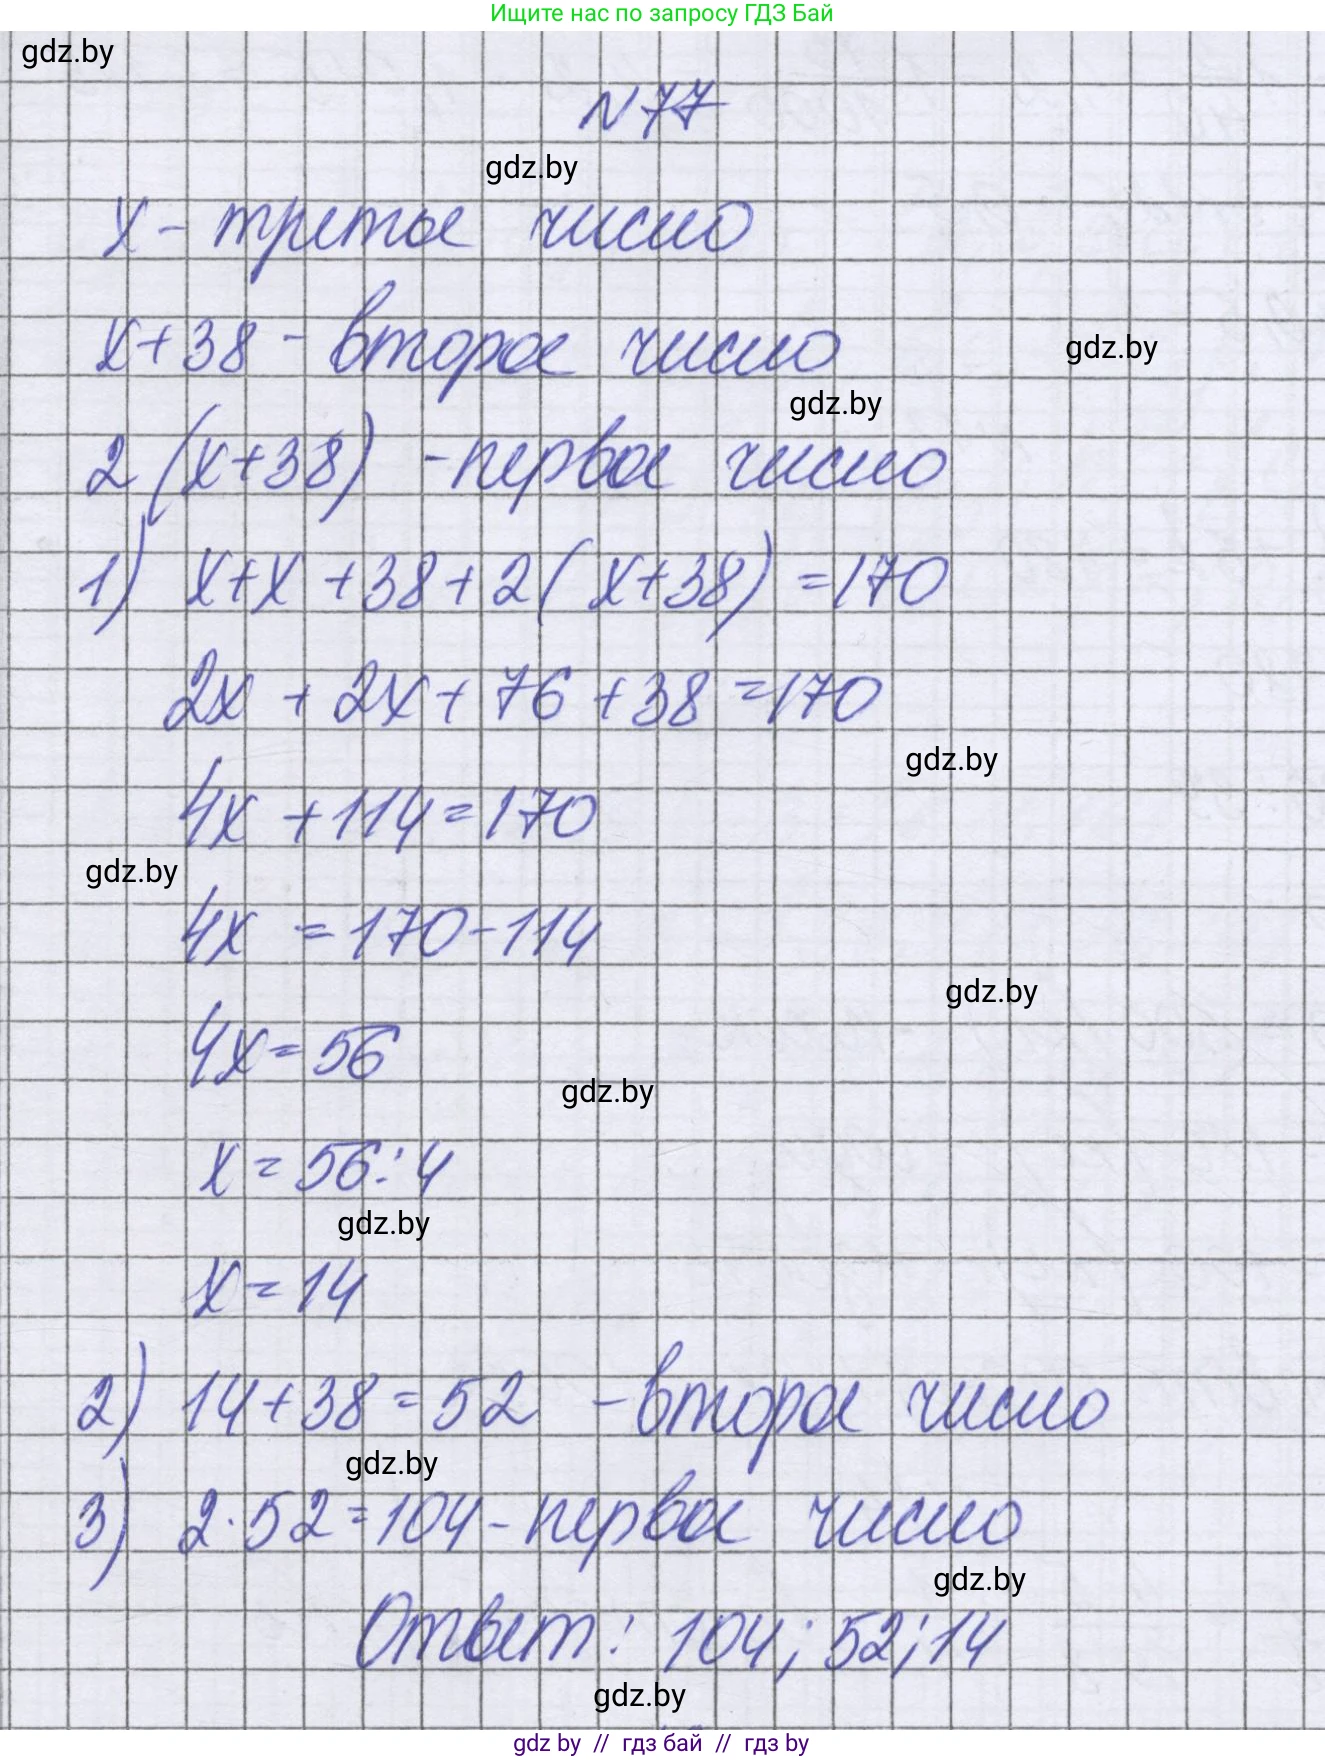 Ищите нас по запросу ГДЗ Бай
gdz.by
N77
gdz.by
x - третье число
x+38 - второе число
gdz.by
gdz.by
2(x+38) - первое число
1) x+x+38+2(x+38)=170
2x+2x+76+38=170
gdz.by
4x+114=170
gdz.by
4x=170-114
gdz.by
4x=56
gdz.by
x=56:4
gdz.by
x=14
2) 14+38=52 - второе число
gdz.by
3) 2·52=104- первое число
gdz.by
Ответ: 104; 52; 14
gdz.by
gdz by // гдз бай // гдз by